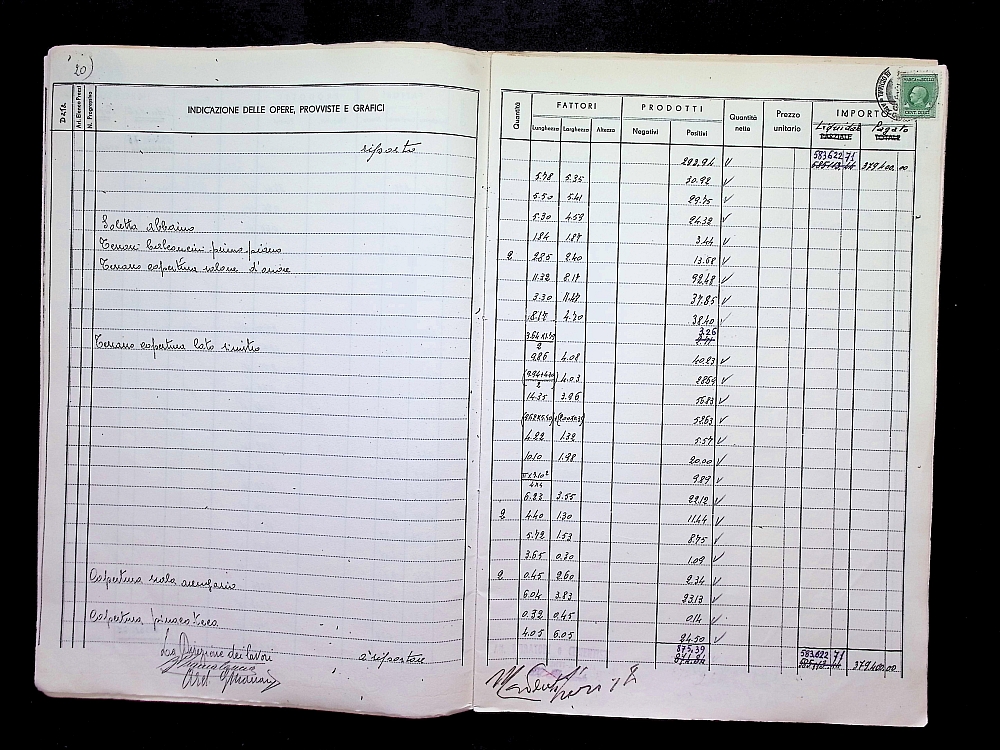 20)
DATA
Art. Elenco Prezzi
N. Progressivo
INDICAZIONE DELLE OPERE, PROVVISTE E GRAFICI
riporto
Soletta abbaino
Terrazzo copertura salone d'onore
Terrazzo copertura lato sinistro
Copertura sala arengario
Copertura pinacoteca
La Direzione dei lavori
a riportare
Quantità
FATTORI
PRODOTTI
Quantità nette
Prezzo unitario
IMPORTO
Lunghezza Larghezza Altezza
Negativi Positivi
Liquidato Pagato
PARZIALE TOTALE
MARCA DA BOLLO
CENT. DIECI
583622 71
292.94 v 379400.00
5.78 5.35 30.92 v
5.50 5.41 29.75 v
5.30 4.59 24.32 v
1.84 1.87 3.44 v
2 2.85 2.40 13.68 v
11.32 8.17 92.48 v
3.30 11.47 37.85 v
8.17 4.70 38.40 v
3.26
2
9.86 4.08 40.23 v
4.03
2
14.35 3.96 56.83 v
52.63 v
4.22 1.32 5.57 v
10.10 1.98 20.00 v
9.89 v
6.23 3.55 22.12 v
2 4.40 1.30 11.44 v
5.72 1.53 8.75 v
3.65 0.30 1.09 v
2 0.45 2.60 2.34 v
6.04 3.83 23.13 v
0.32 0.45 0.14 v
4.05 6.05 24.50 v
875,39 583622 71
379400.00